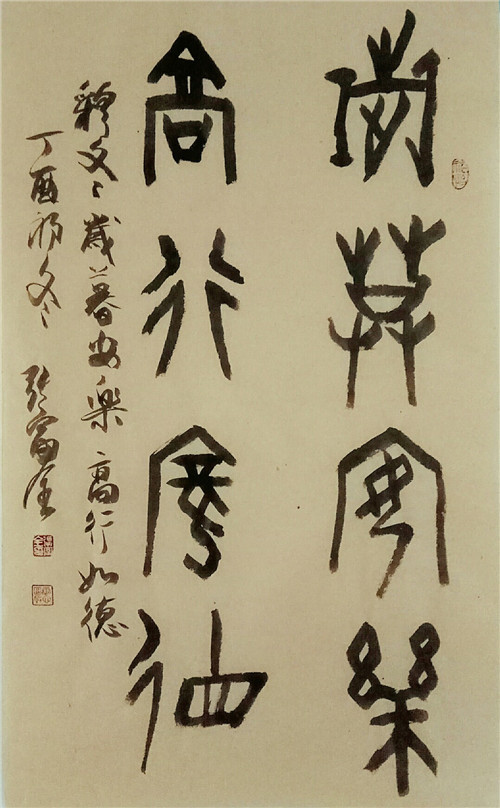 歲莫安樂
高行如德
釋文：歲暮安樂 高行如德
丁酉初冬 張富全